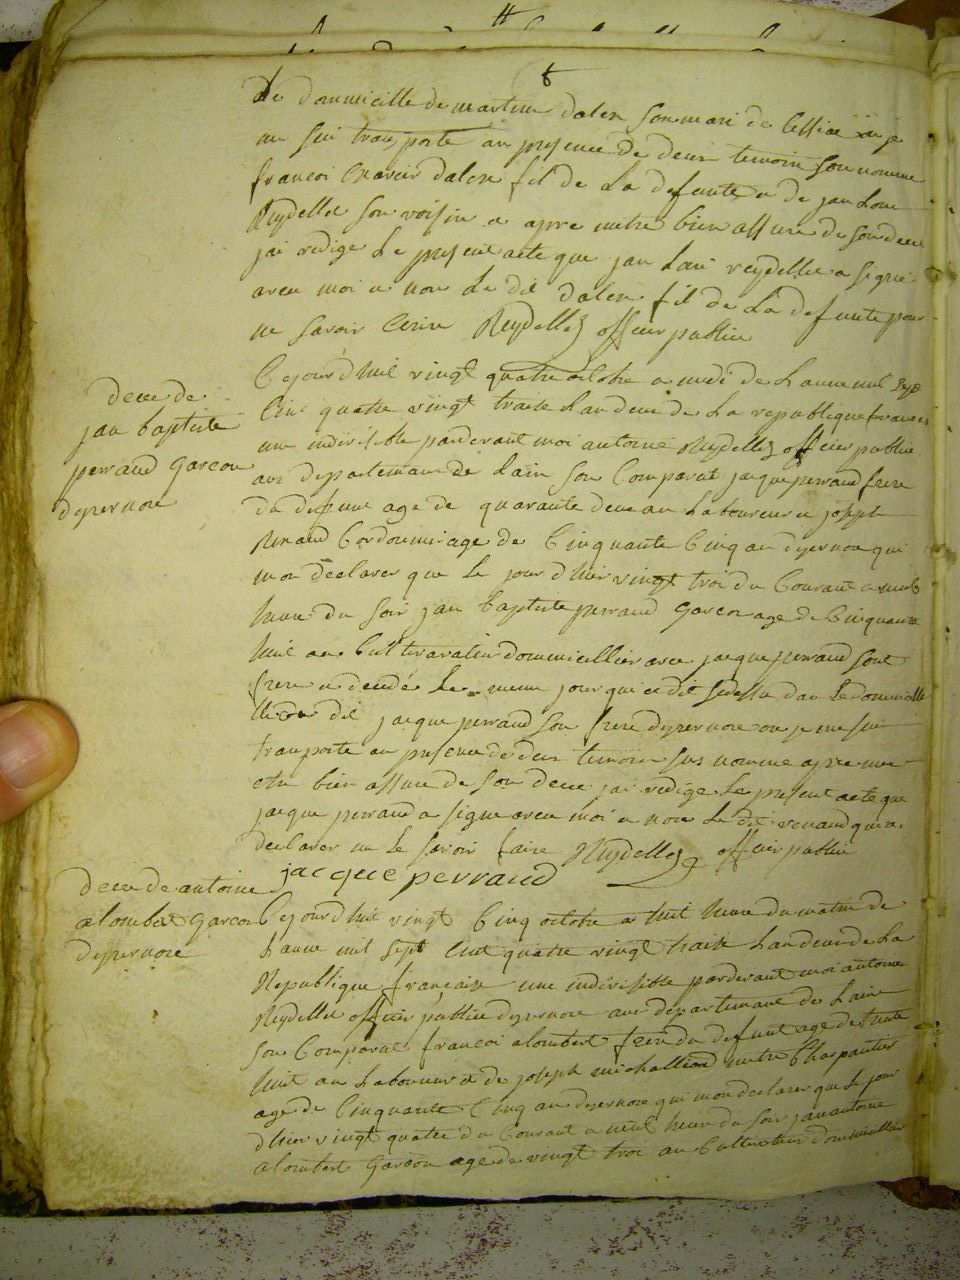 de dommicille de martin dalex son mari de où je
me sui transporte an presence de deux temoin son nomme
francoi dalex fil de la defunte e de jan loui
Reydellet son voisin e apre metre bien assure de son dece
jai redige le present acte que jan loui reydellet a signe
avec moi e non le dit dalex fil de la defunte pour
ne savoir Ecrire Reydellet officier publie
dece de
jan baptiste
perraud garcon
dizernore
Cejourdhui vingt quatre octobre a midi de lanne mil sept
Cent quatre vingt traise landeux de la republique francai
une indivisible parderant moi antoine Reydellet officier publie
aux departemant de lain son Comparut jacque perraud frere
du defunt age de quarante deux an laboureur e joseph
Renaud Cordonnie age de Cinquante Cinq an dizernore qui
mon declarer que le jour dhier vingt troi du Courant a
heure du soir jan baptiste perraud garcon age de Cinquante
huit an Cultivateur dommicillier avec jacque perraud sont
frere e decede le meme jour qui e dit sudessu dan le dommicille
du dit jacque perraud son frere dizernore ou je me sui
transporte an presence de deux temoin sus nomme apre me
etre bien assure de son dece jai redige le present acte que
jacque perraud a signe avec moi e non le dit renaud qui a
declarer ne le savoir faire Reydellet officier publie
jacque perraud
dece de antoine
alombert garcon
dizernore
Cejourdhui vingt Cinq octobre a huit heure du matin de
lanne mil sept Cent quatre vingt traise landeux de la
Republique francaise une indivisible parderant moi antoine
Reydellet officier publie dizernore aux departemant de lain
son Comparut francoi alombert frere du defunt age de trente
huit an laboureur e de joseph michallion metre Charpantier
age de Cinquante Cinq an dizernore qui mon declarer que le jour
dhier vingt quatre du Courant a neuf heure du soir jan antoine
alombert garcon age de vingt troi an Cultivateur dommicillier